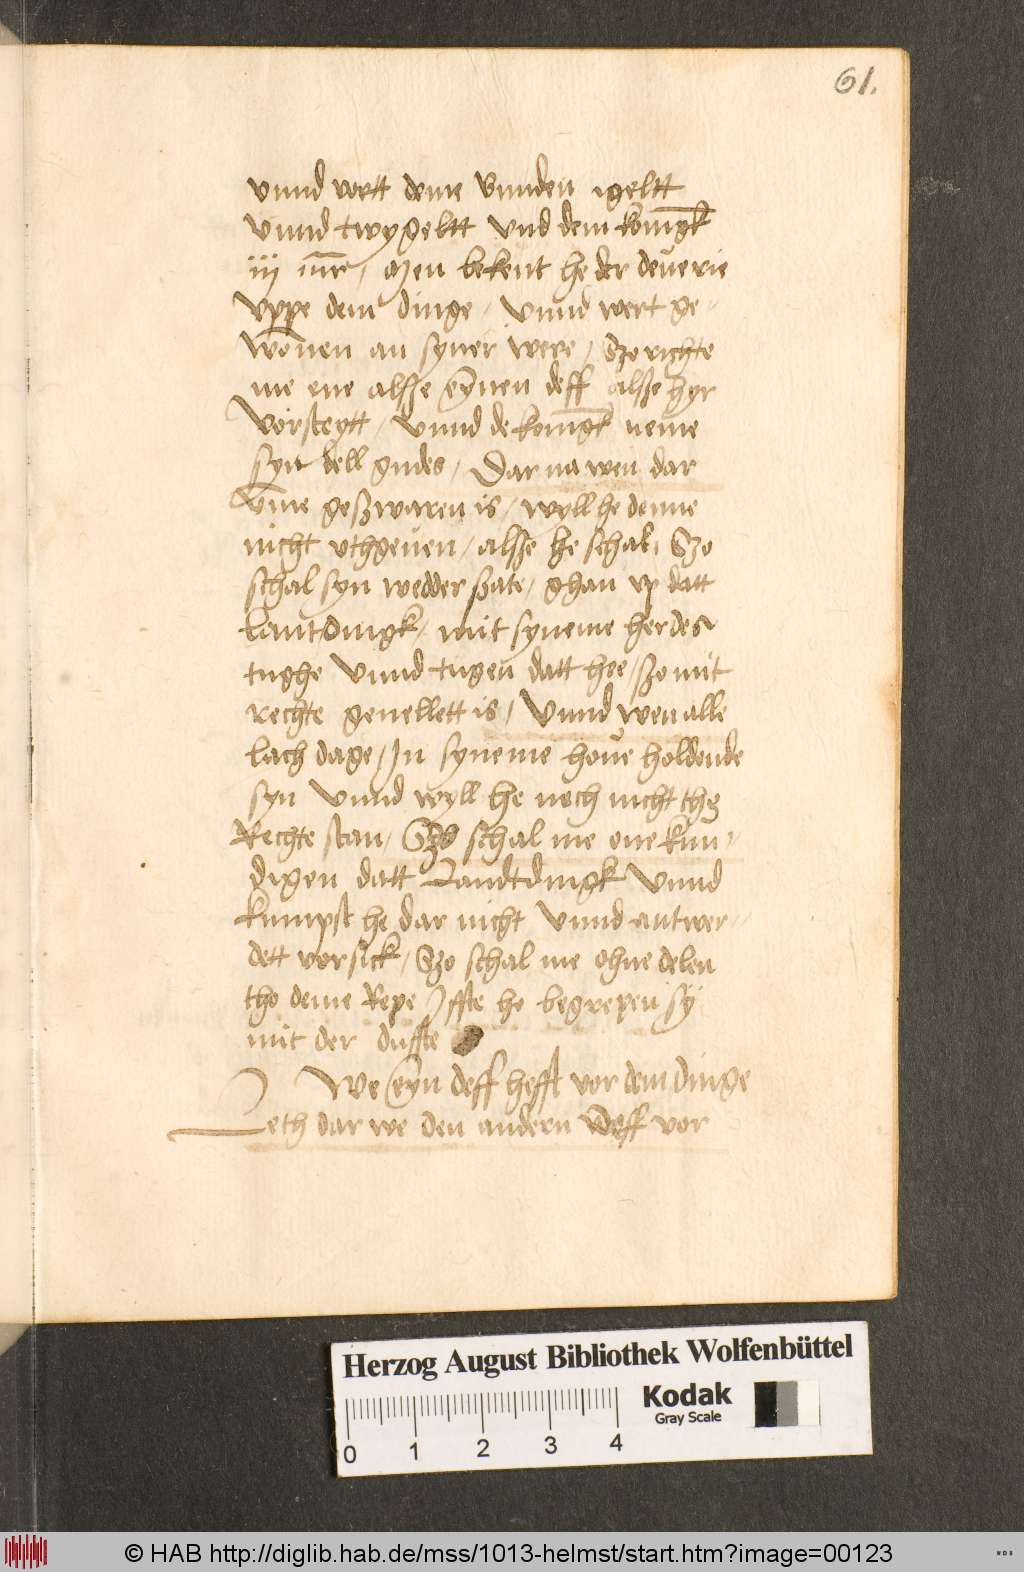 61.
vnnd wett deme bunden igeltt
vnnd twygeltt vnd dem konīgk
iij mr̄, Men bekent he der deuerie
vppe dem dinge, vnnd wert ge-
wōnen an syner were, Szo richte
me ene alsse eynen deff alsze hyr
vorsteytt, vnnd de konīgk neme
syn dell gudes, Dar na wen dar
vm̄e geszwaren is, wyll he denne
nicht vthgeuen, alsze he schal, Szo
schal syn wedder sate, ghan vp datt
lantdingk, mit syneme herdes
tughe vnnd tugen datt hee, szo mit
rechte geuellett is, Vnnd wen alle
lach dage, In syneme houe holdende
syn vnnd wyll he noch nicht tho
Rechte stan, Szo schal me ene kun-
digen datt Landtdingk vnnd
kumpst he dar nicht vnnd antwer-
dett vor sick, Szo schal me ohne delen
tho deme Repe Iffte he begrepen sy
mit der duffte
We eyn deff hefft vor dem dinge
Leth dar we den andern deff vor
Herzog August Bibliothek Wolfenbüttel
Kodak
Gray Scale
0 1 2 3 4
© HAB http://diglib.hab.de/mss/1013-helmst/start.htm?image=00123